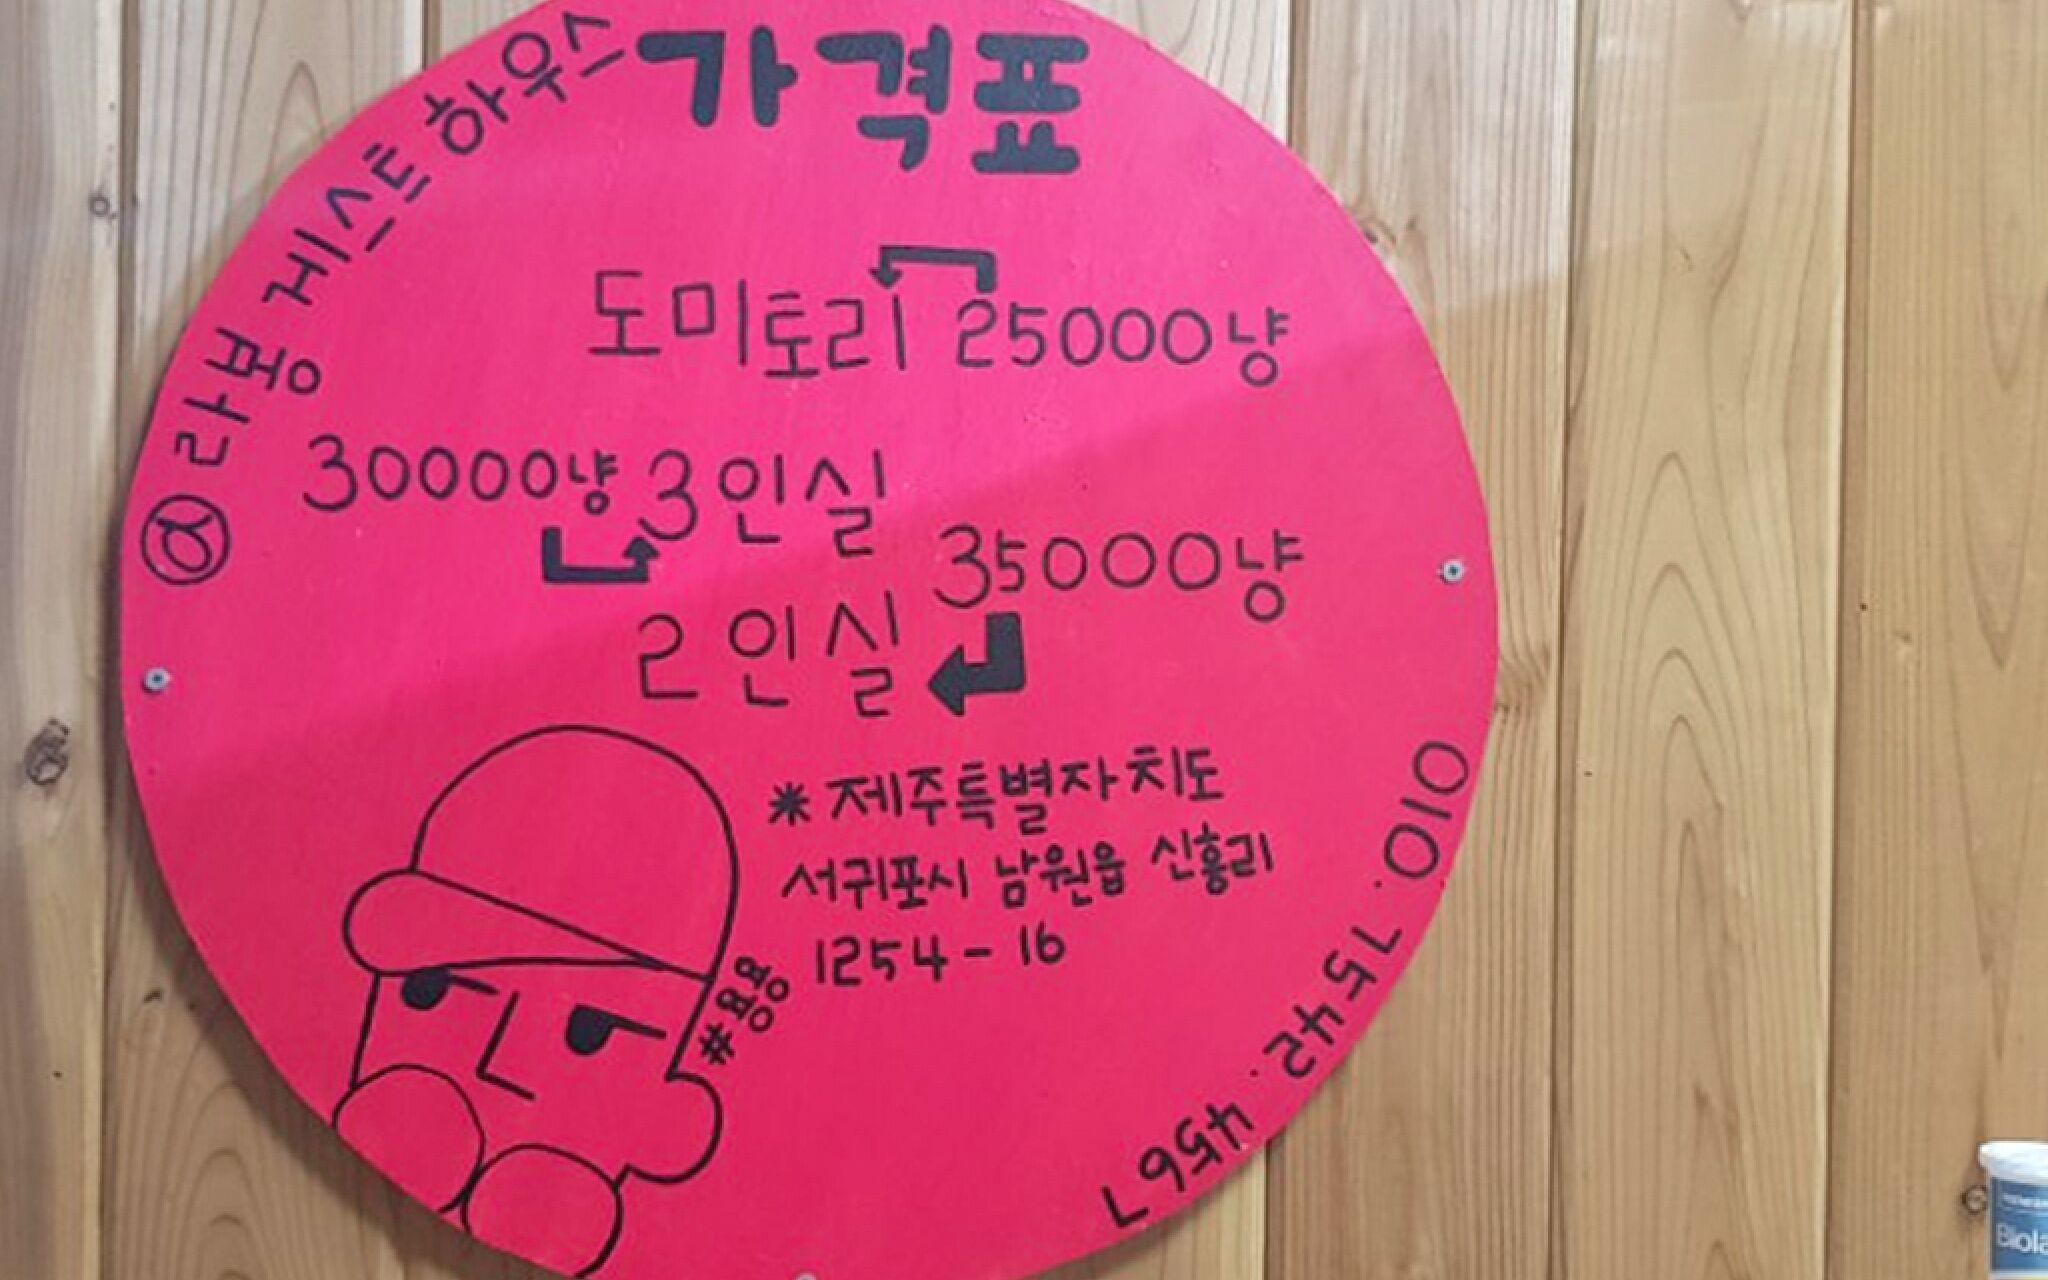 가격표
@ 라봉 게스트 하우스
도미토리 25000냥
30000냥 3인실
35000냥
2인실
* 제주특별자치도
서귀포시 남원읍 신흥리
1254-16
#뽕뽕
010. 7542. 4567